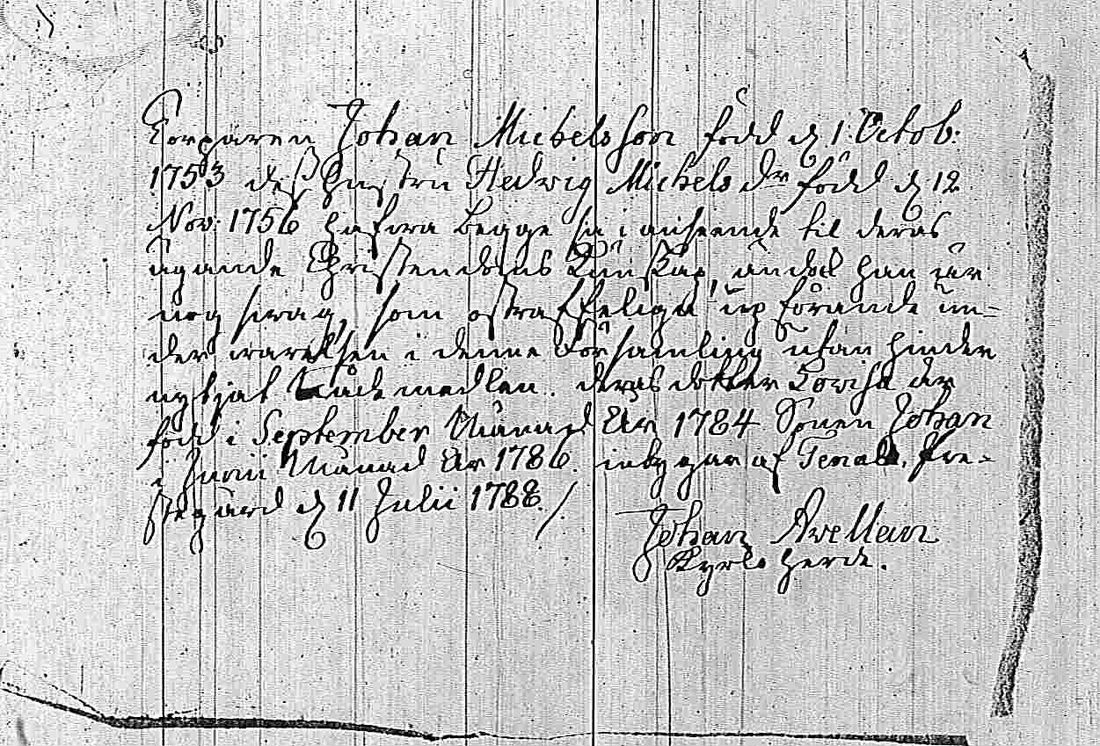 Torparen Johan Michelsson född d. 1. Octob:
1753 dess hustru Hedwig Michels dr född d. 12
Nov: 1756 hafwa begge så i anseende til deras
ägande Christendoms Kunskap, ändock han är
nog swag, som ostraffeliga upförande un=
der warelsen i denne Församling utan hinder
nyttjat Nådemedlen. deras dotter Lovisa är
född i September Månad År 1784 Sonen Johan
i Junii Månad År 1786. intygar af Tenala Pre=
stegård d. 11 Julii 1788./.
Johan Avellan
Kyrko Herde.